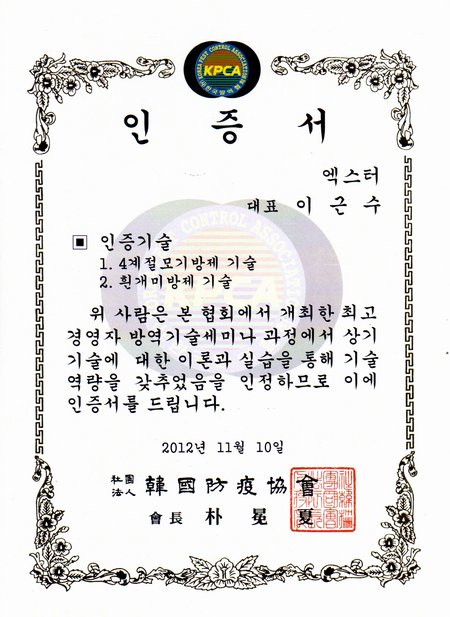 KOREA PEST CONTROL ASSOCIATION
KPCA
인 증 서
엑스터
대표 이 근 수
▣ 인증기술
1. 4계절모기방제 기술
2. 흰개미방제 기술
위 사람은 본 협회에서 개최한 최고
경영자 방역기술세미나 과정에서 상기
기술에 대한 이론과 실습을 통해 기술
역량을 갖추었음을 인정하므로 이에
인증서를 드립니다.
2012년 11월 10일
社團法人 韓國防疫協會
會長 朴 冕 夏